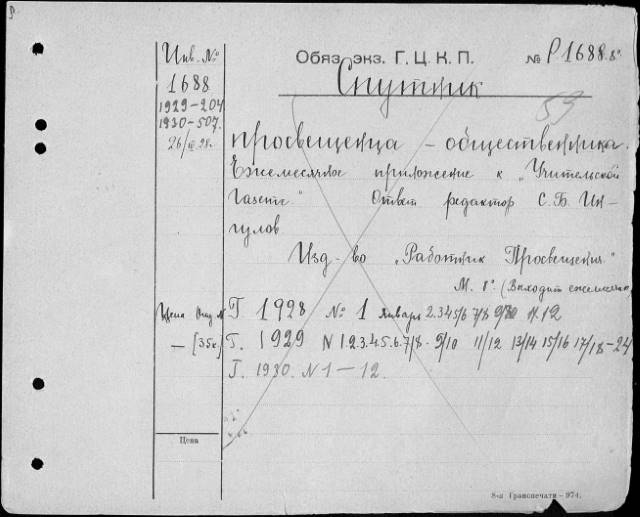 Инв. №
1688
1929-204
1930-507.
26/III 28.
Обяз. экз. Г. Ц. К. П. № Р1688. 8°
Спутник
53
просвещенца - общественника.
Ежемесячное приложение к "Учительской
газете." Ответ редактор С. Б. Ин-
гулов
Изд-во "Работник Просвещения."
М. 8°. (Выходит ежемесячно)
Цена
Г 1928 № 1 январь 2.3.4.5/6 7/8 9/10 11.12
— [35к.] Г. 1929 N 1.2.3.4.5.6.7/8- 9/10 11/12 13/14 15/16 17/18-24
Г. 1930. N 1-12.
Цена
8-я Гранспечати - 974.